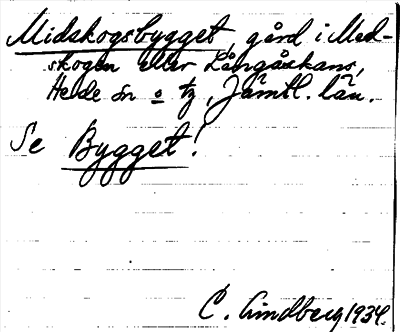 Midskogsbygget, gård i Mid-
skogen eller Långåskans,
Hede sn o tg, Jämtl. län.
Se Bygget!
C. Lindberg 1934.